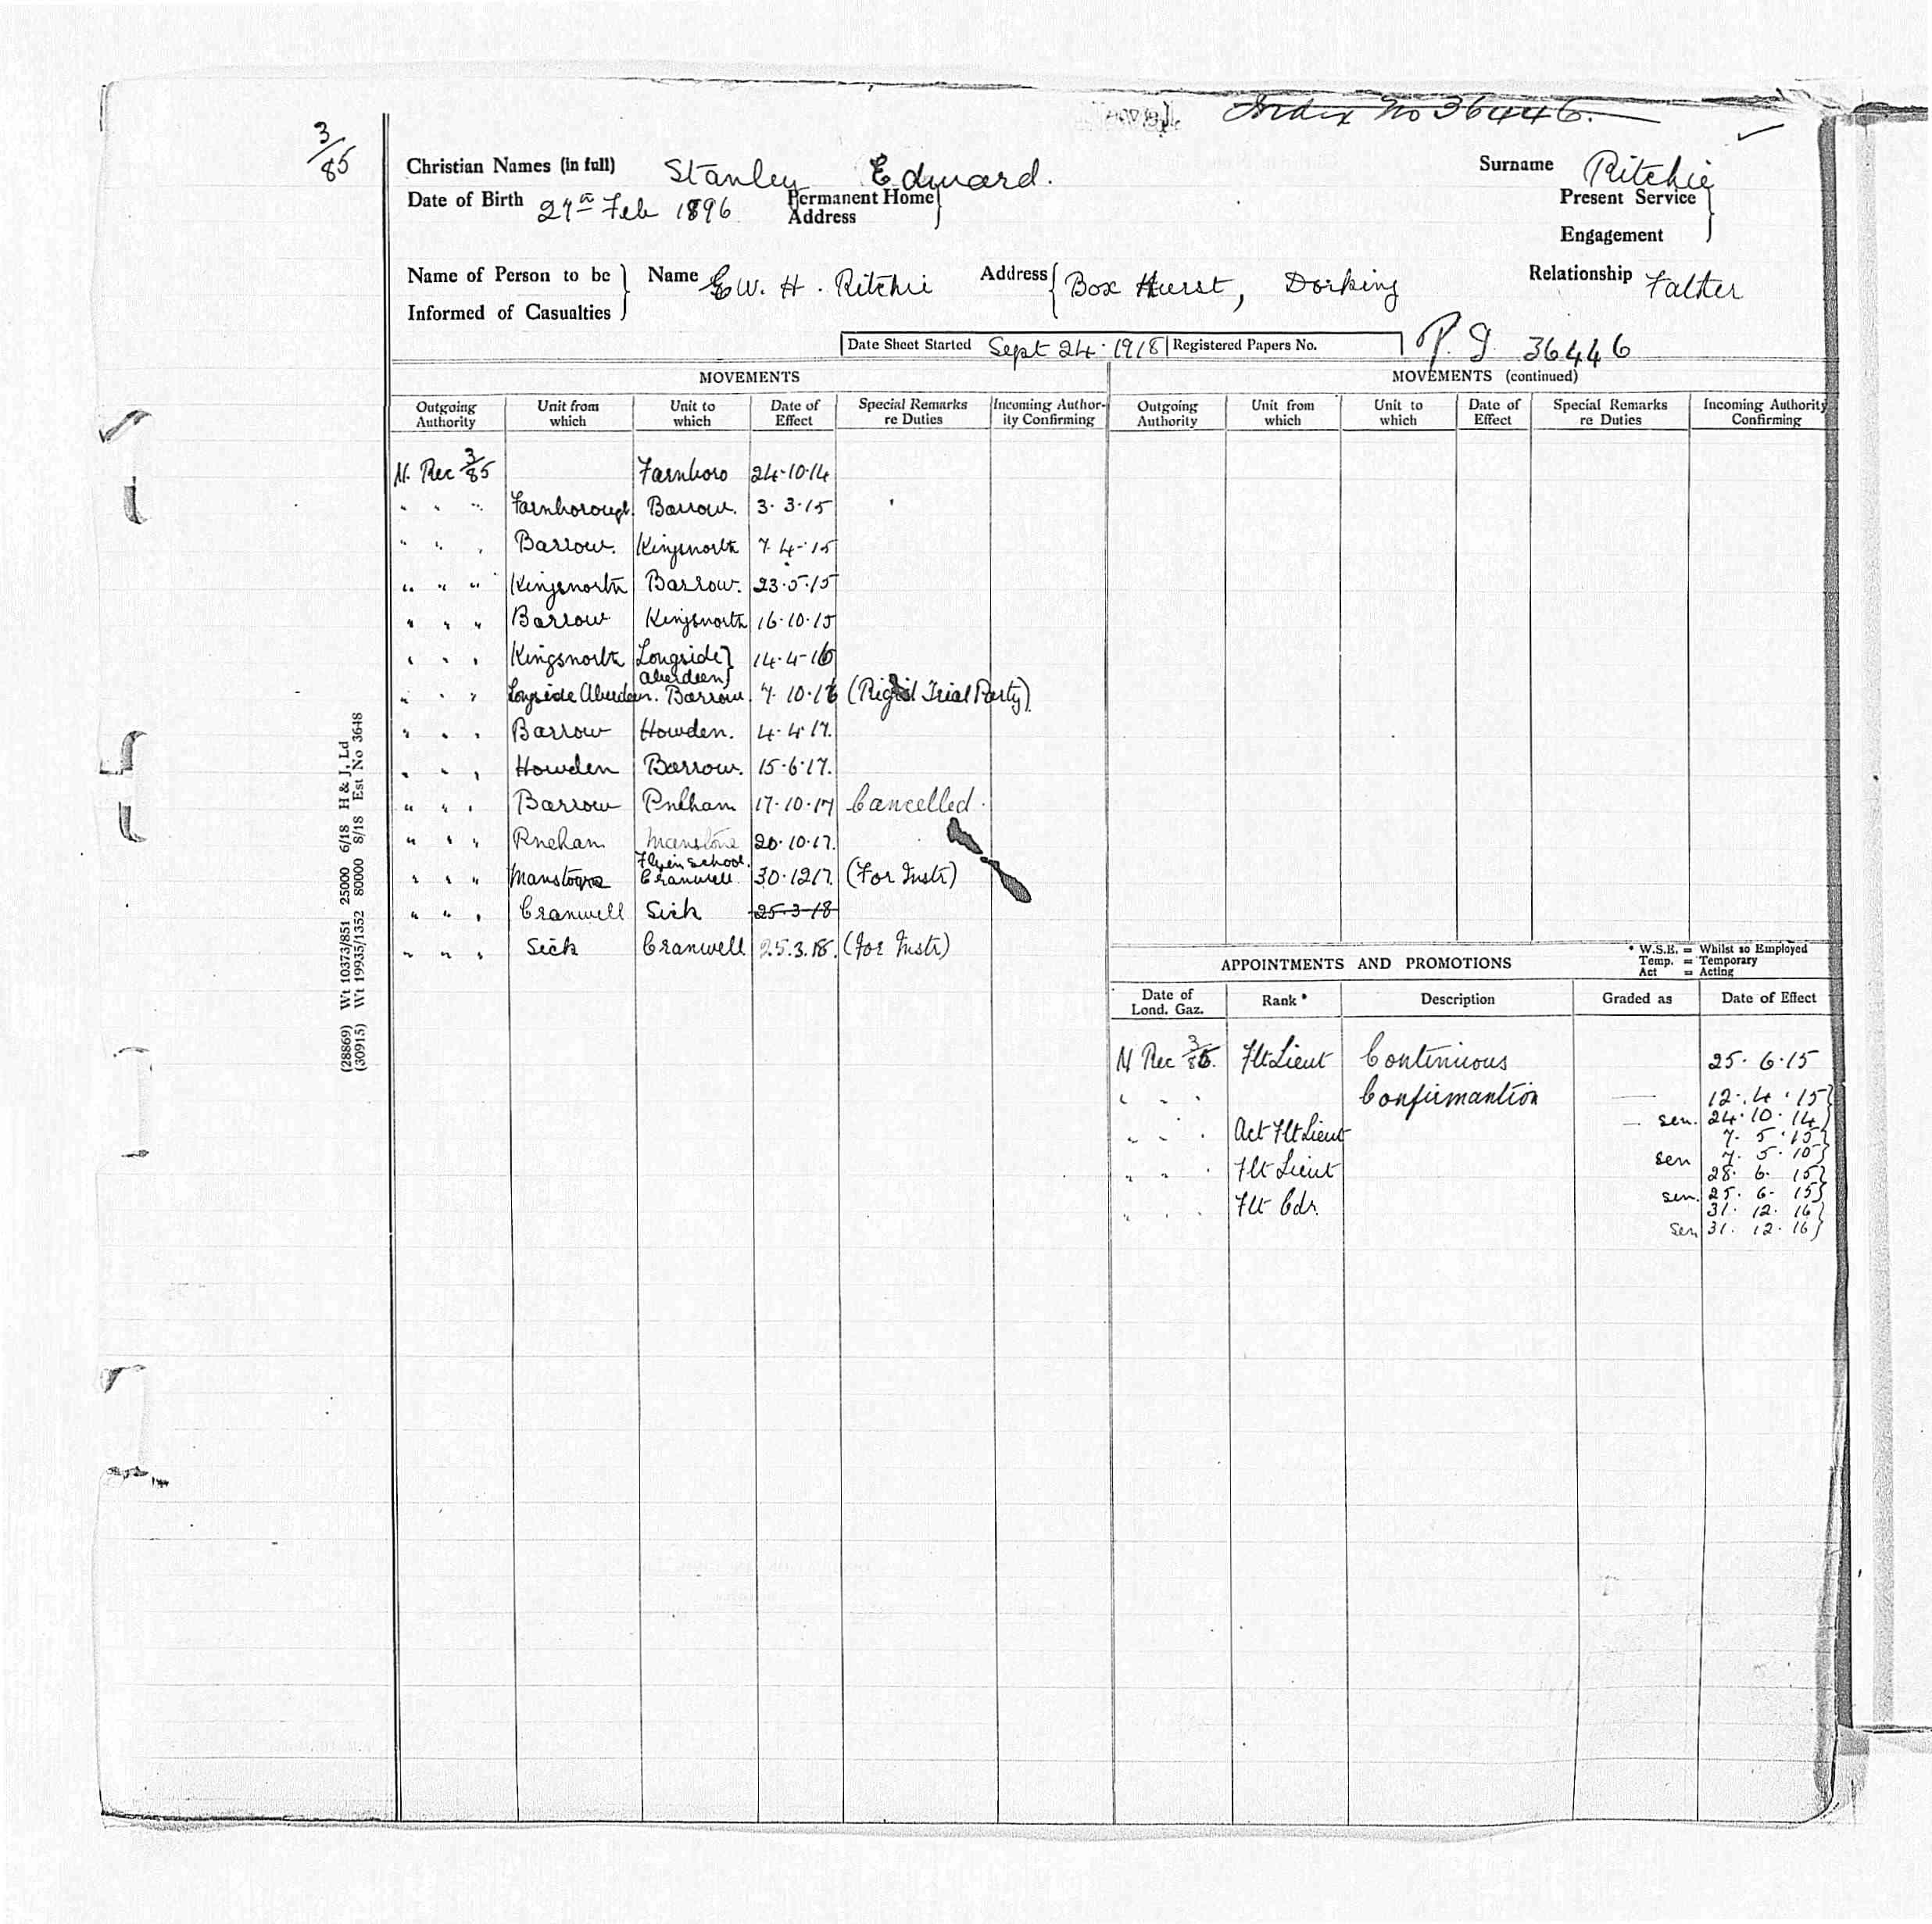 Index No 36446.
3/85
Christian Names (in full) Stanley Edward. Surname Ritchie
Date of Birth 27th Feb 1896 Permanent Home Address Present Service
Engagement
Name of Person to be Informed of Casualties Name E W. H. Ritchie Address Box Hurst, Dorking Relationship Father
Date Sheet Started Sept 24. 1918 Registered Papers No. P. 36446
MOVEMENTS
Outgoing Authority Unit from which Unit to which Date of Effect Special Remarks re Duties Incoming Authority Confirming
N. Rec 3/85 Farnboro 24.10.14
" " " Farnborough. Barrow. 3.3.15
" " " Barrow. Kingsnorth 7.4.15
" " " Kingsnorth Barrow. 23.5.15
" " " Barrow Kingsnorth 16.10.15
" " " Kingsnorth Longside Aberdeen 14.4.16
" " " Longside Aberdeen. Barrow. 7.10.16 (Rigid Trial Party)
" " " Barrow Howden. 4.4.17.
" " " Howden Barrow. 15.6.17.
" " " Barrow Pulham 17.10.17 Cancelled.
" " " Manstone 20.10.17.
" " " Manstone Flyin School. Cranwell 30.12.17. (For Instr)
" " " Cranwell Sick 25.3.18
" " " Sick Cranwell 25.3.18. (for Instr)
MOVEMENTS (continued)
Outgoing Authority Unit from which Unit to which Date of Effect Special Remarks re Duties Incoming Authority Confirming
APPOINTMENTS AND PROMOTIONS
* W.S.E. = Whilst so Employed
Temp. = Temporary
Act = Acting
Date of Lond. Gaz. Rank * Description Graded as Date of Effect
N Rec 3/85. Flt Lieut Continuous 25.6.15
" " " Confirmantion — 12.4.15
— sen. 24.10.14
" " " Act Flt Lieut 7.5.15
sen 7.5.15
" " " Flt Lieut 28.6.15
sen. 25.6.15
" " " Flt Cdr. 31.12.16
sen 31.12.16
(28869) Wt 10373/851 25000 6/18 H & J, Ld
(30915) Wt 19935/1352 80000 8/18 Est No 3648